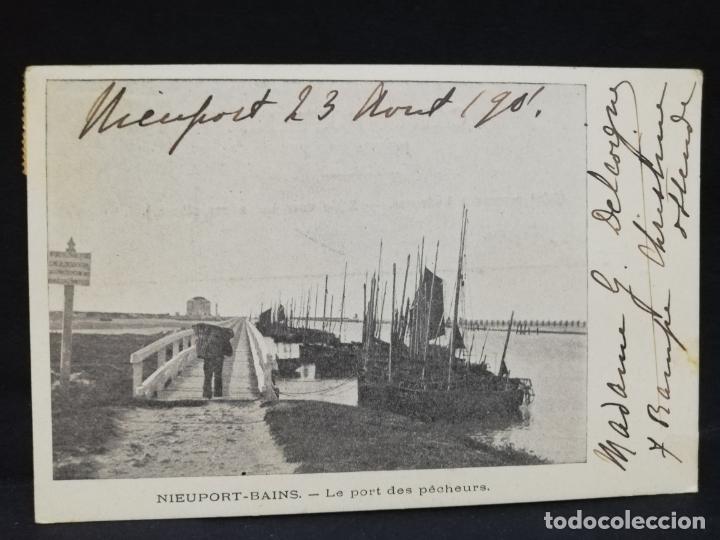 Nieuport 23 Aout 1901.
Madame G. Delcoigne
7 Rampe Christine
Ostende
NIEUPORT-BAINS. — Le port des pêcheurs.
todocoleccion.net